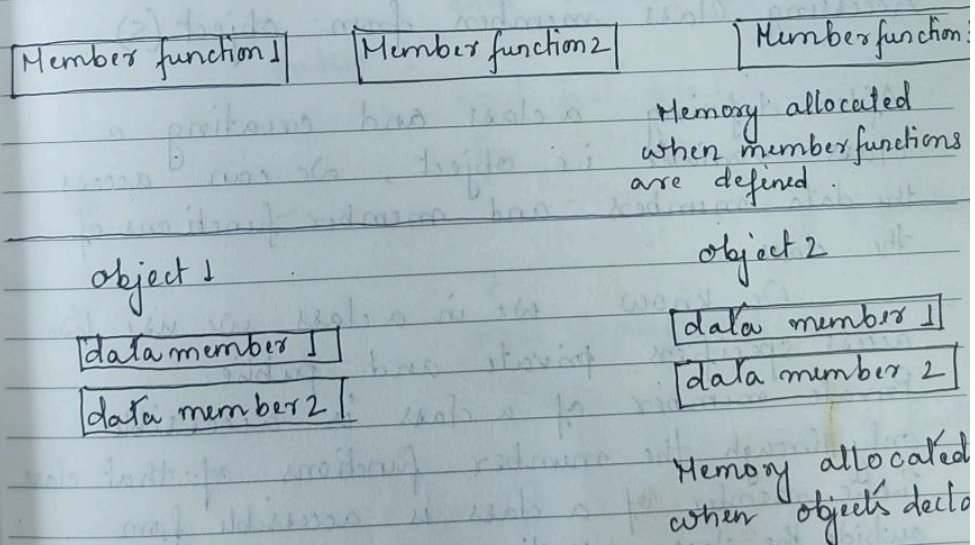 Member function 1 Member function 2 Member function
Memory allocated
when member functions
are defined.
object 1 object 2
data member 1 data member 1
data member 2 data member 2
Memory allocated
when objects